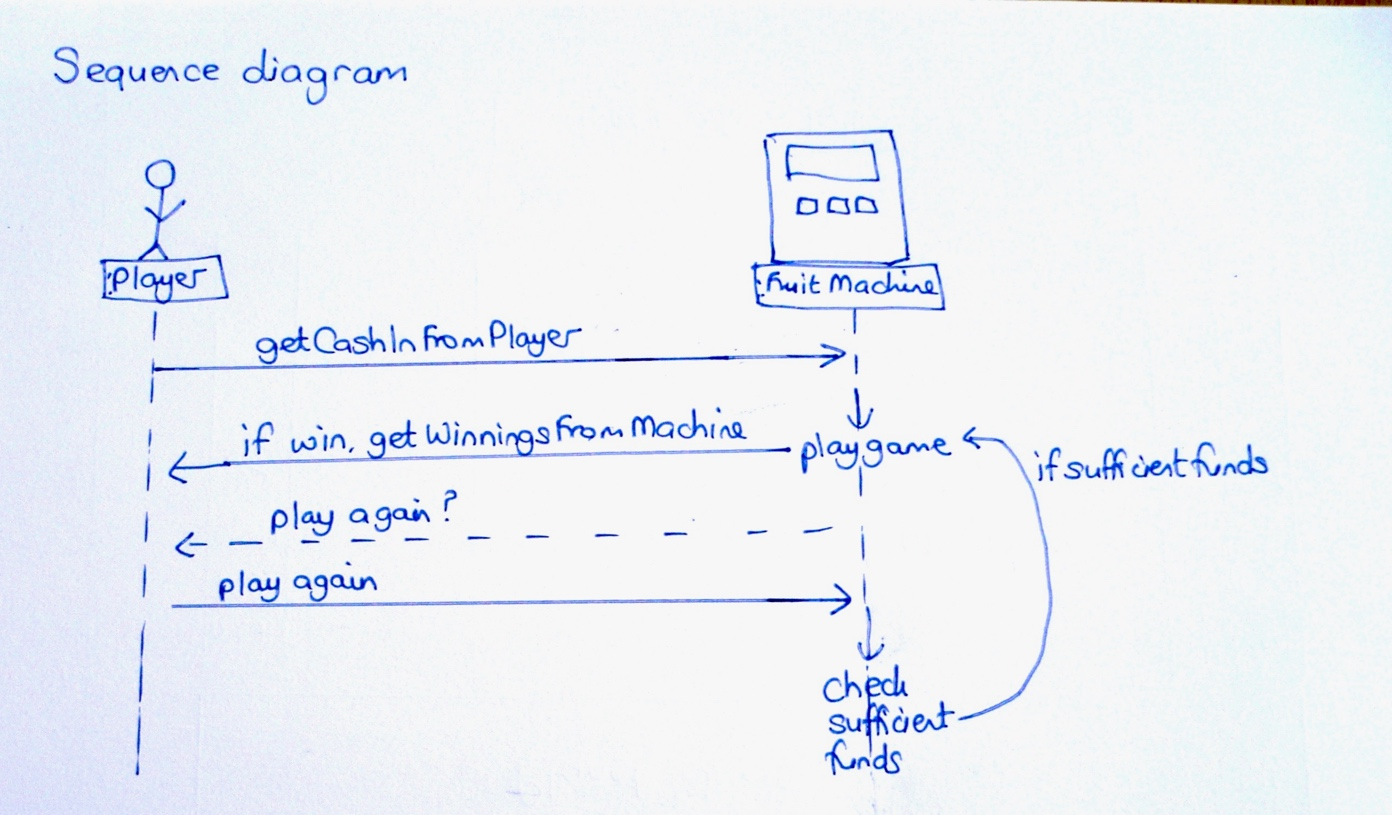 Sequence diagram
:Player
:Fruit Machine
getCashInFromPlayer
if win, getWinningsFromMachine
playgame
if sufficient funds
play again?
play again
check
sufficient
funds